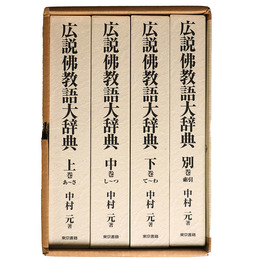 広説佛教語大辞典
上巻
あ~さ
中村 元 著
東京書籍
広説佛教語大辞典
中巻
し~つ
中村 元 著
東京書籍
広説佛教語大辞典
下巻
て~わ
中村 元 著
東京書籍
広説佛教語大辞典
別巻
索引
中村 元 著
東京書籍